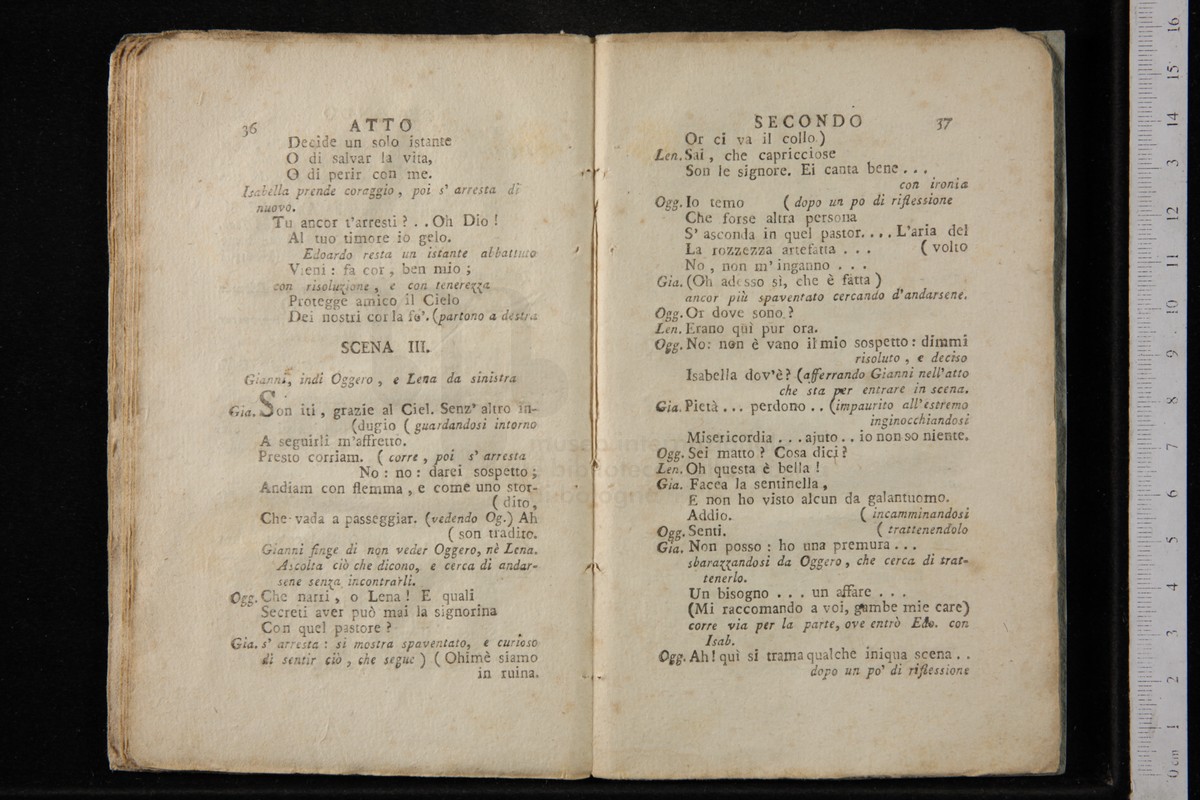 36 ATTO
Decide un solo istante
O di salvar la vita,
O di perir con me.
Isabella prende coraggio, poi s' arresta di
nuovo.
Tu ancor t'arresti ? . . Oh Dio !
Al tuo timore io gelo.
Edoardo resta un istante abbattuto
Vieni : fa cor, ben mio ;
con risoluzione, e con tenerezza
Protegge amico il Cielo
Dei nostri cor la fe'. (partono a destra
SCENA III.
Gianni, indi Oggero, e Lena da sinistra
Gia. Son iti, grazie al Ciel. Senz' altro in-
(dugio ( guardandosi intorno
A seguirli m'affretto.
Presto corriam. ( corre, poi s' arresta
No : no : darei sospetto ;
Andiam con flemma, e come uno stor-
( dito,
Che vada a passeggiar. (vedendo Og.) Ah
( son tradito.
Gianni finge di non veder Oggero, nè Lena.
Ascolta ciò che dicono, e cerca di andar-
sene senza incontrarli.
Ogg. Che narri, o Lena ! E quali
Secreti aver può mai la signorina
Con quel pastore ?
Gia. s' arresta : si mostra spaventato, e curioso
di sentir ciò, che segue ) ( Ohimè siamo
in ruina.
SECONDO 37
Or ci va il collo.)
Len. Sai, che capricciose
Son le signore. Ei canta bene . . .
con ironia
Ogg. Io temo ( dopo un po di riflessione
Che forse altra persona
S' asconda in quel pastor. . . . L'aria del
La rozzezza artefatta . . . ( volto
No, non m' inganno . . .
Gia. (Oh adesso sì, che è fatta )
ancor più spaventato cercando d'andarsene.
Ogg. Or dove sono ?
Len. Erano quì pur ora.
Ogg. No : non è vano il mio sospetto : dimmi
risoluto, e deciso
Isabella dov'è ? (afferrando Gianni nell'atto
che sta per entrare in scena.
Gia. Pietà . . . perdono . . (impaurito all'estremo
inginocchiandosi
Misericordia . . . ajuto . . io non so niente.
Ogg. Sei matto ? Cosa dici ?
Len. Oh questa è bella !
Gia. Facea la sentinella,
E non ho visto alcun da galantuomo.
Addio. ( incamminandosi
Ogg. Senti. ( trattenendolo
Gia. Non posso : ho una premura . . .
sbarazzandosi da Oggero, che cerca di trat-
tenerlo.
Un bisogno . . . un affare . . .
(Mi raccomando a voi, gambe mie care)
corre via per la parte, ove entrò Edo. con
Isab.
Ogg. Ah ! quì si trama qualche iniqua scena . .
dopo un po' di riflessione